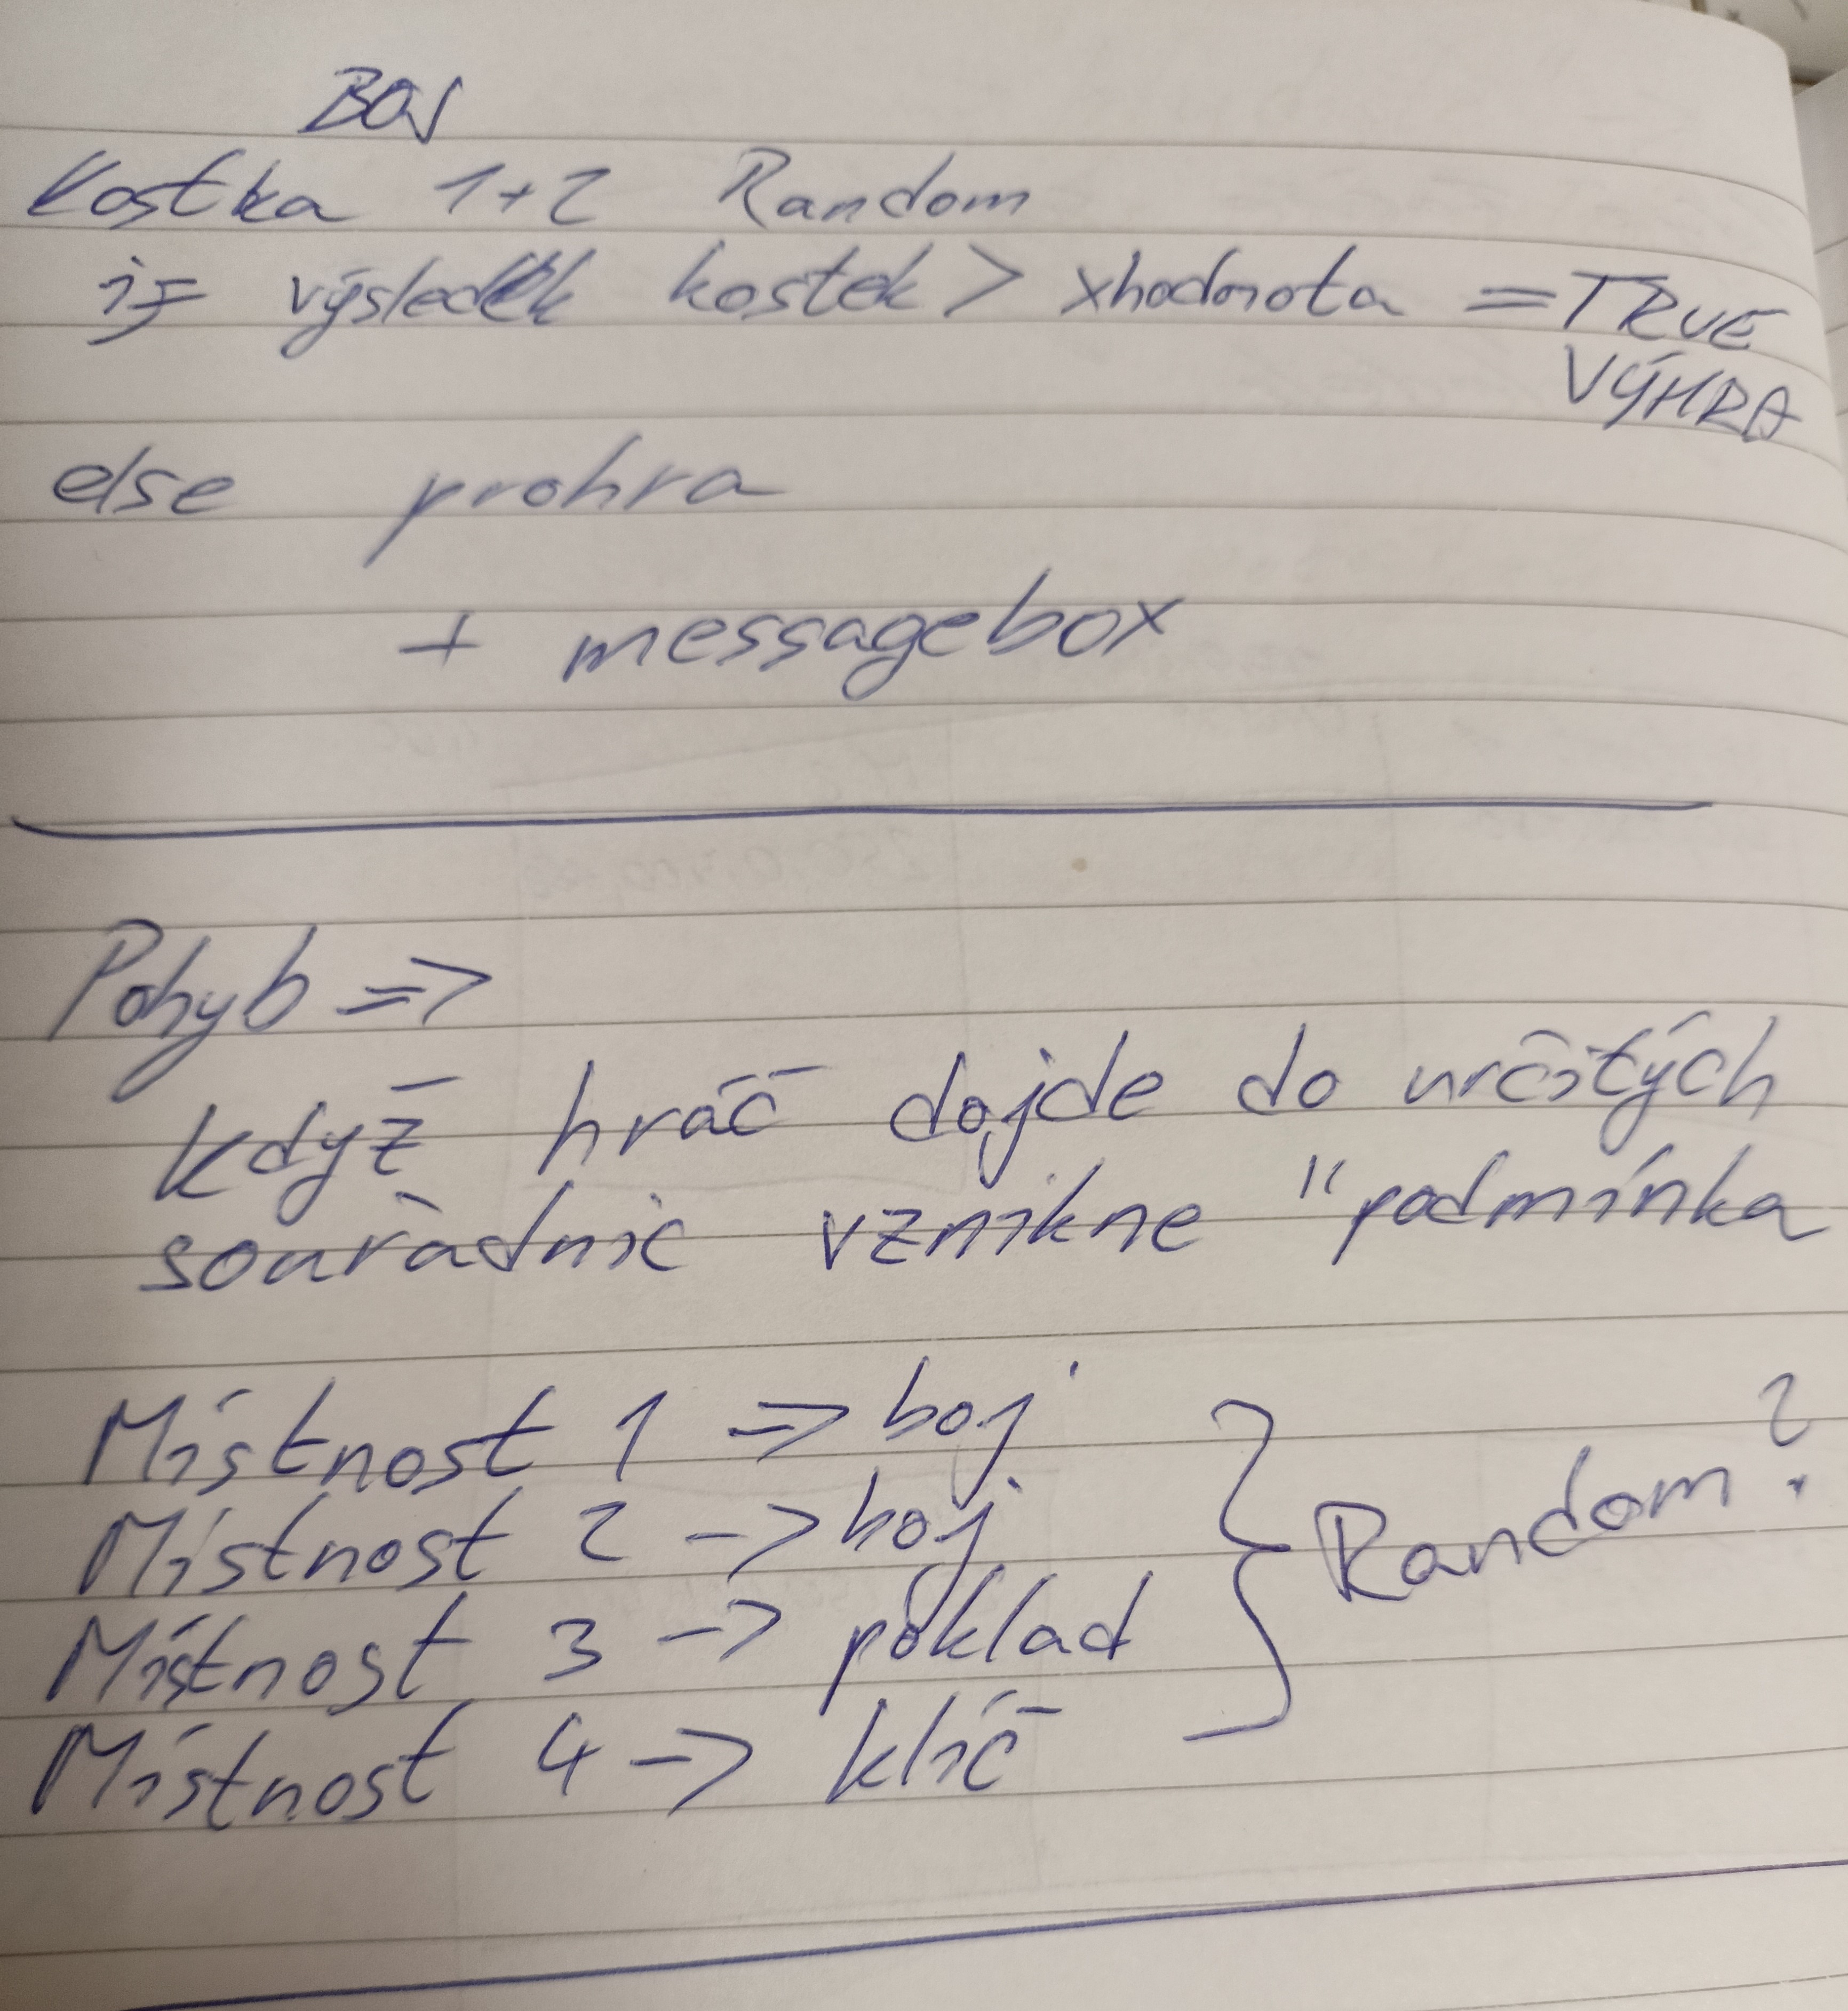 BOJ
Kostka 1+2 Random
if výsledek kostek > xhodnota = TRUE
VÝHRA
else prohra
+ messagebox
Pohyb =>
když hráč dojde do určitých
souřadnic vznikne "podmínka
Místnost 1 => boj
Místnost 2 -> boj
Místnost 3 -> poklad
Místnost 4 -> klíč
} Random?